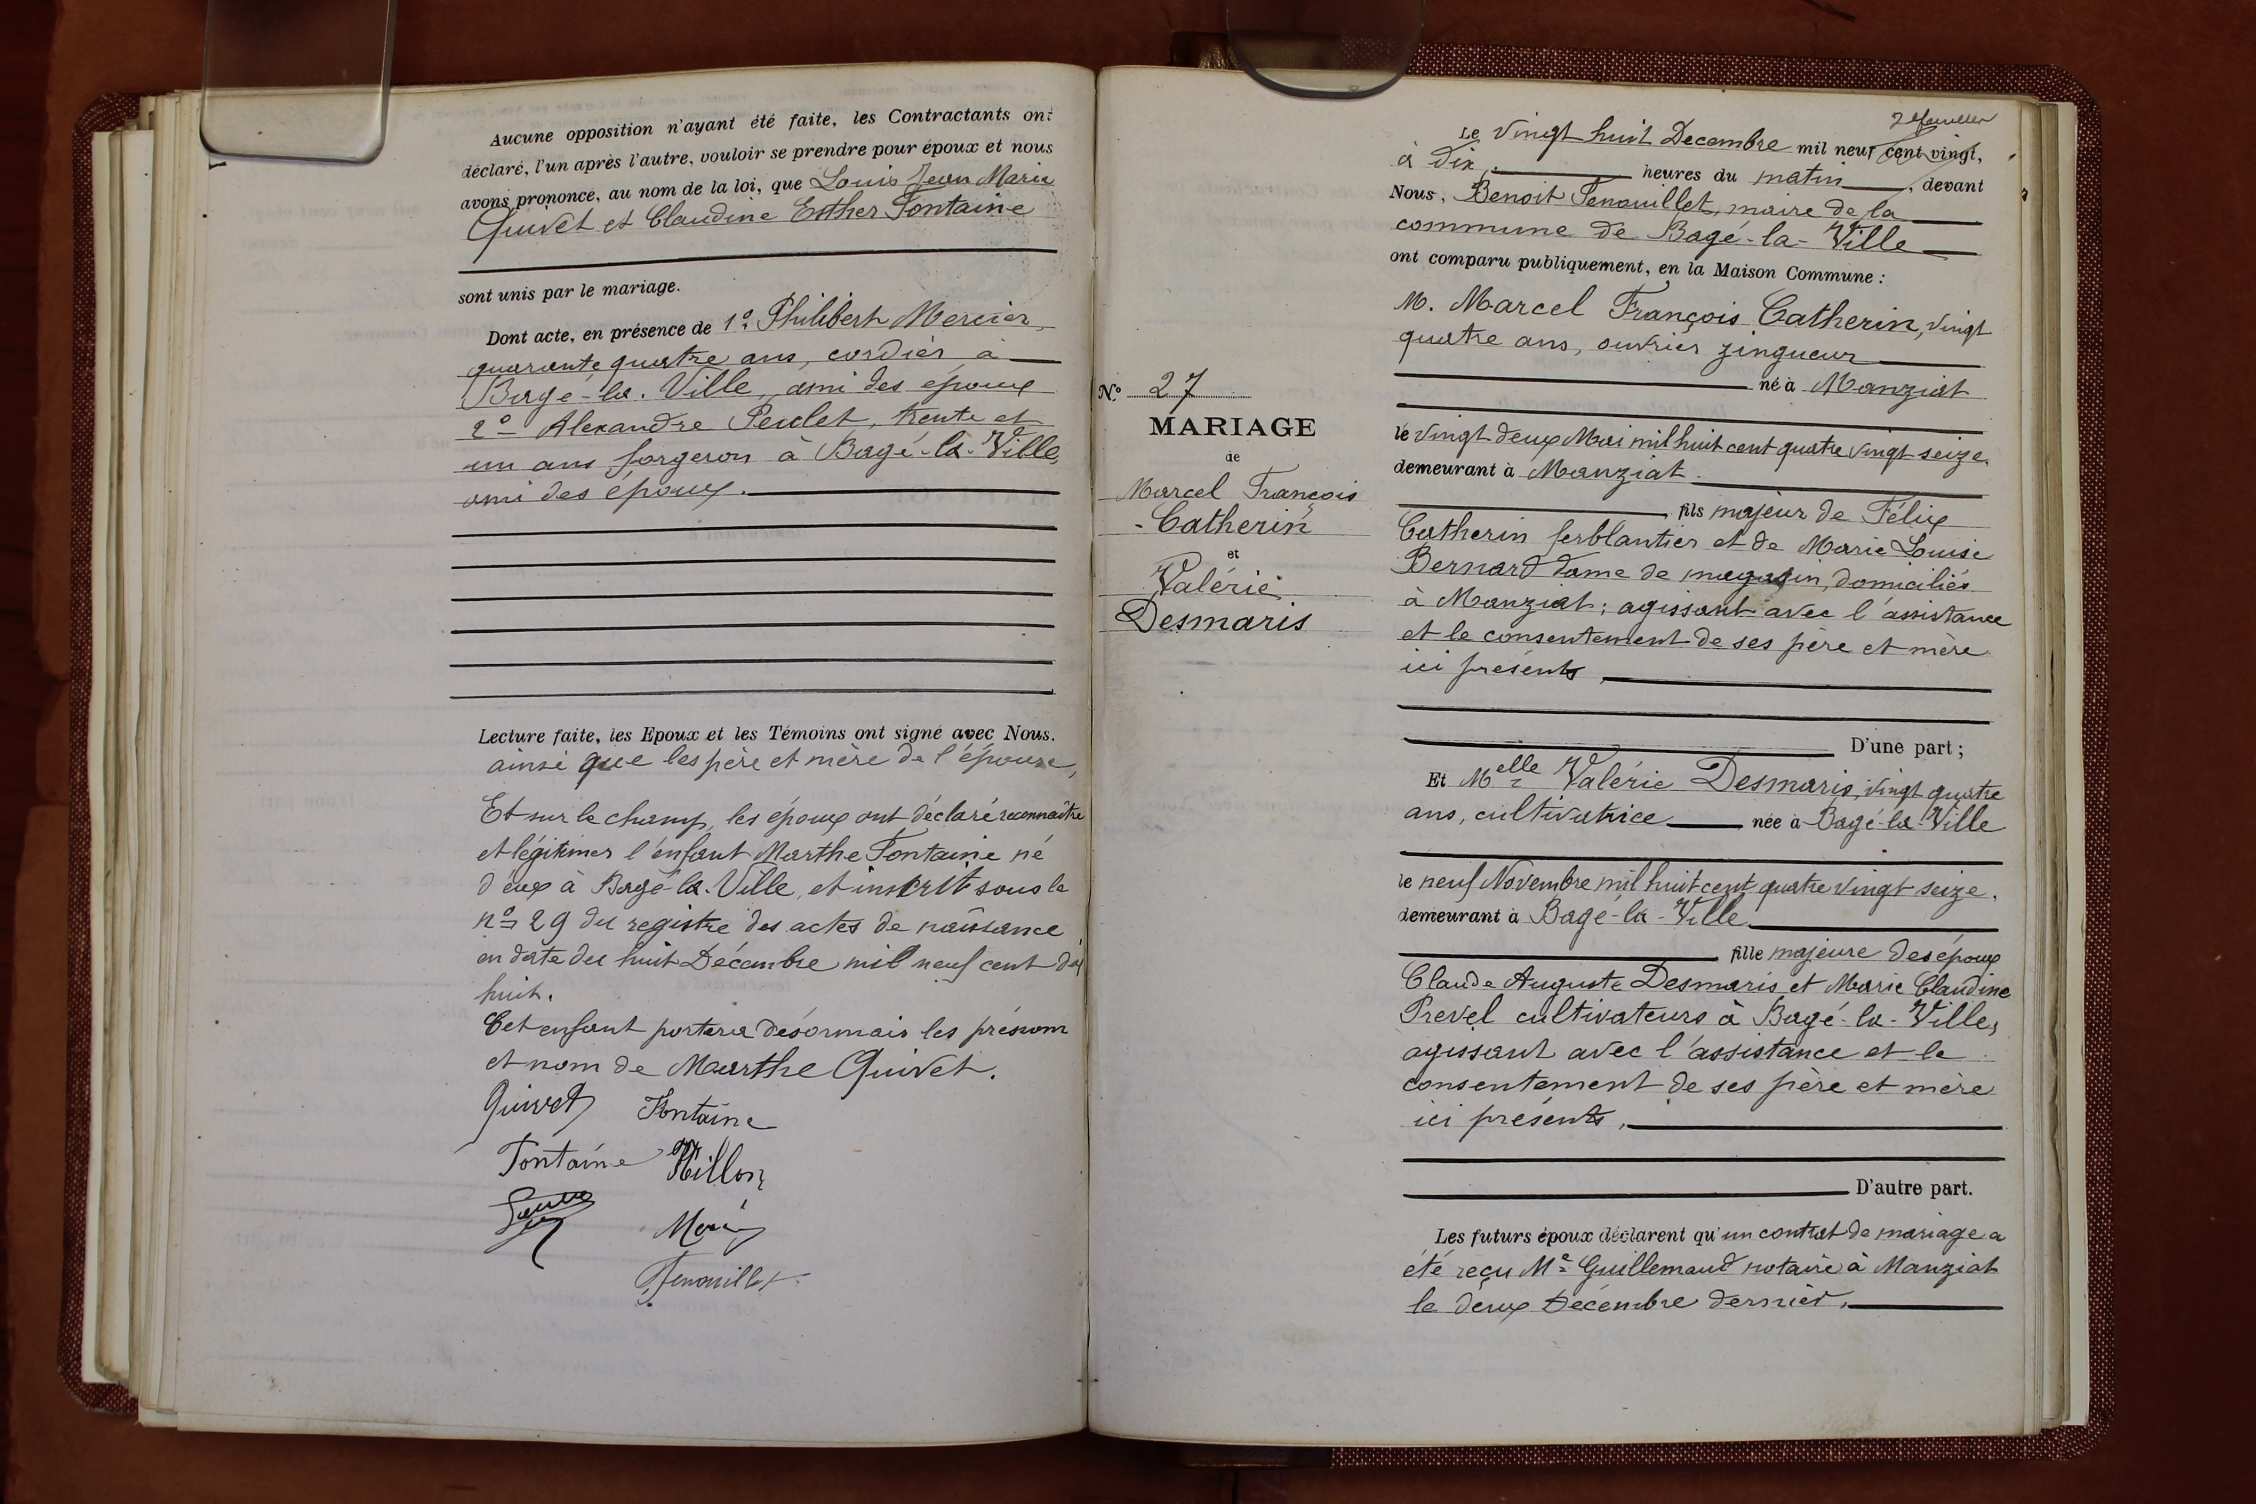 Aucune opposition n'ayant été faite, les Contractants ont
déclaré, l'un après l'autre, vouloir se prendre pour époux et nous
avons prononcé, au nom de la loi, que Louis Jean Marie
Quivet et Claudine Esther Fontaine
sont unis par le mariage.
Dont acte, en présence de 1º. Philibert Mercier,
quarante quatre ans, cordier à
Bagé-la-Ville, ami des époux
2º Alexandre Peulet, trente et
un ans forgeron à Bagé-la-Ville,
ami des époux.
Lecture faite, les Epoux et les Témoins ont signé avec Nous.
ainsi que les père et mère de l'épouse,
Et sur le champ, les époux ont déclaré reconnaître
et légitimer l'enfant Marthe Fontaine né
d'eux à Bagé-la-Ville, et inscrit sous le
nº 29 du registre des actes de naissance
en date du huit Décembre mil neuf cent dix
huit.
Cet enfant portera désormais les prénom
et nom de Marthe Quivet.
Quivet Fontaine
Fontaine Villon
Fenouillet
7e feuillet
Le vingt huit Decembre mil neuf cent vingt,
à dix heures du matin, devant
Nous, Benoit Fenouillet, maire de la
commune de Bagé-la-Ville
ont comparu publiquement, en la Maison Commune :
M. Marcel François Catherin, vingt
quatre ans, ouvrier zingueur
né à Manziat
le vingt deux Mai mil huit cent quatre vingt seize.
demeurant à Manziat.
fils majeur de Félix
Catherin ferblantier et de Marie Louise
Bernard dame de magasin, domiciliés
à Manziat ; agissant avec l'assistance
et le consentement de ses père et mère
ici présents,
D'une part ;
Nº 27
MARIAGE
de
Marcel François
Catherin
et
Valérie
Desmaris
Et Melle Valérie Desmaris, vingt quatre
ans, cultivatrice née à Bagé-la-Ville
le neuf Novembre mil huit cent quatre vingt seize.
demeurant à Bagé-la-Ville
fille majeure des époux
Claude Auguste Desmaris et Marie Claudine
Prevel cultivateurs à Bagé-la-Ville,
agissant avec l'assistance et le
consentement de ses père et mère
ici présents,
D'autre part.
Les futurs époux déclarent qu'un contrat de mariage a
été reçu Me Guillemaud notaire à Manziat
le deux Décembre dernier.